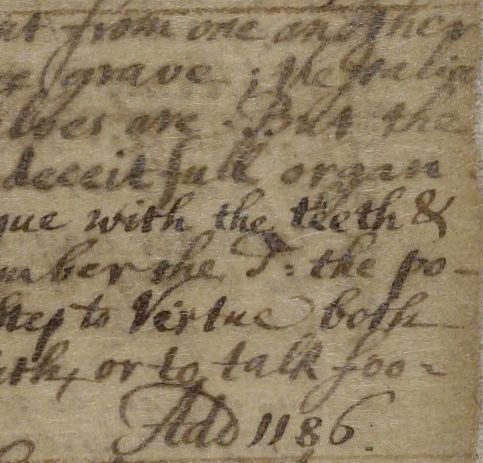 nt from one another
grave ; ye Italia
lves are. But the
deceitfull organ
gue with the teeth &
mber the D: the po-
step to Vertue both
ish, or to talk foo=
Add 1186.